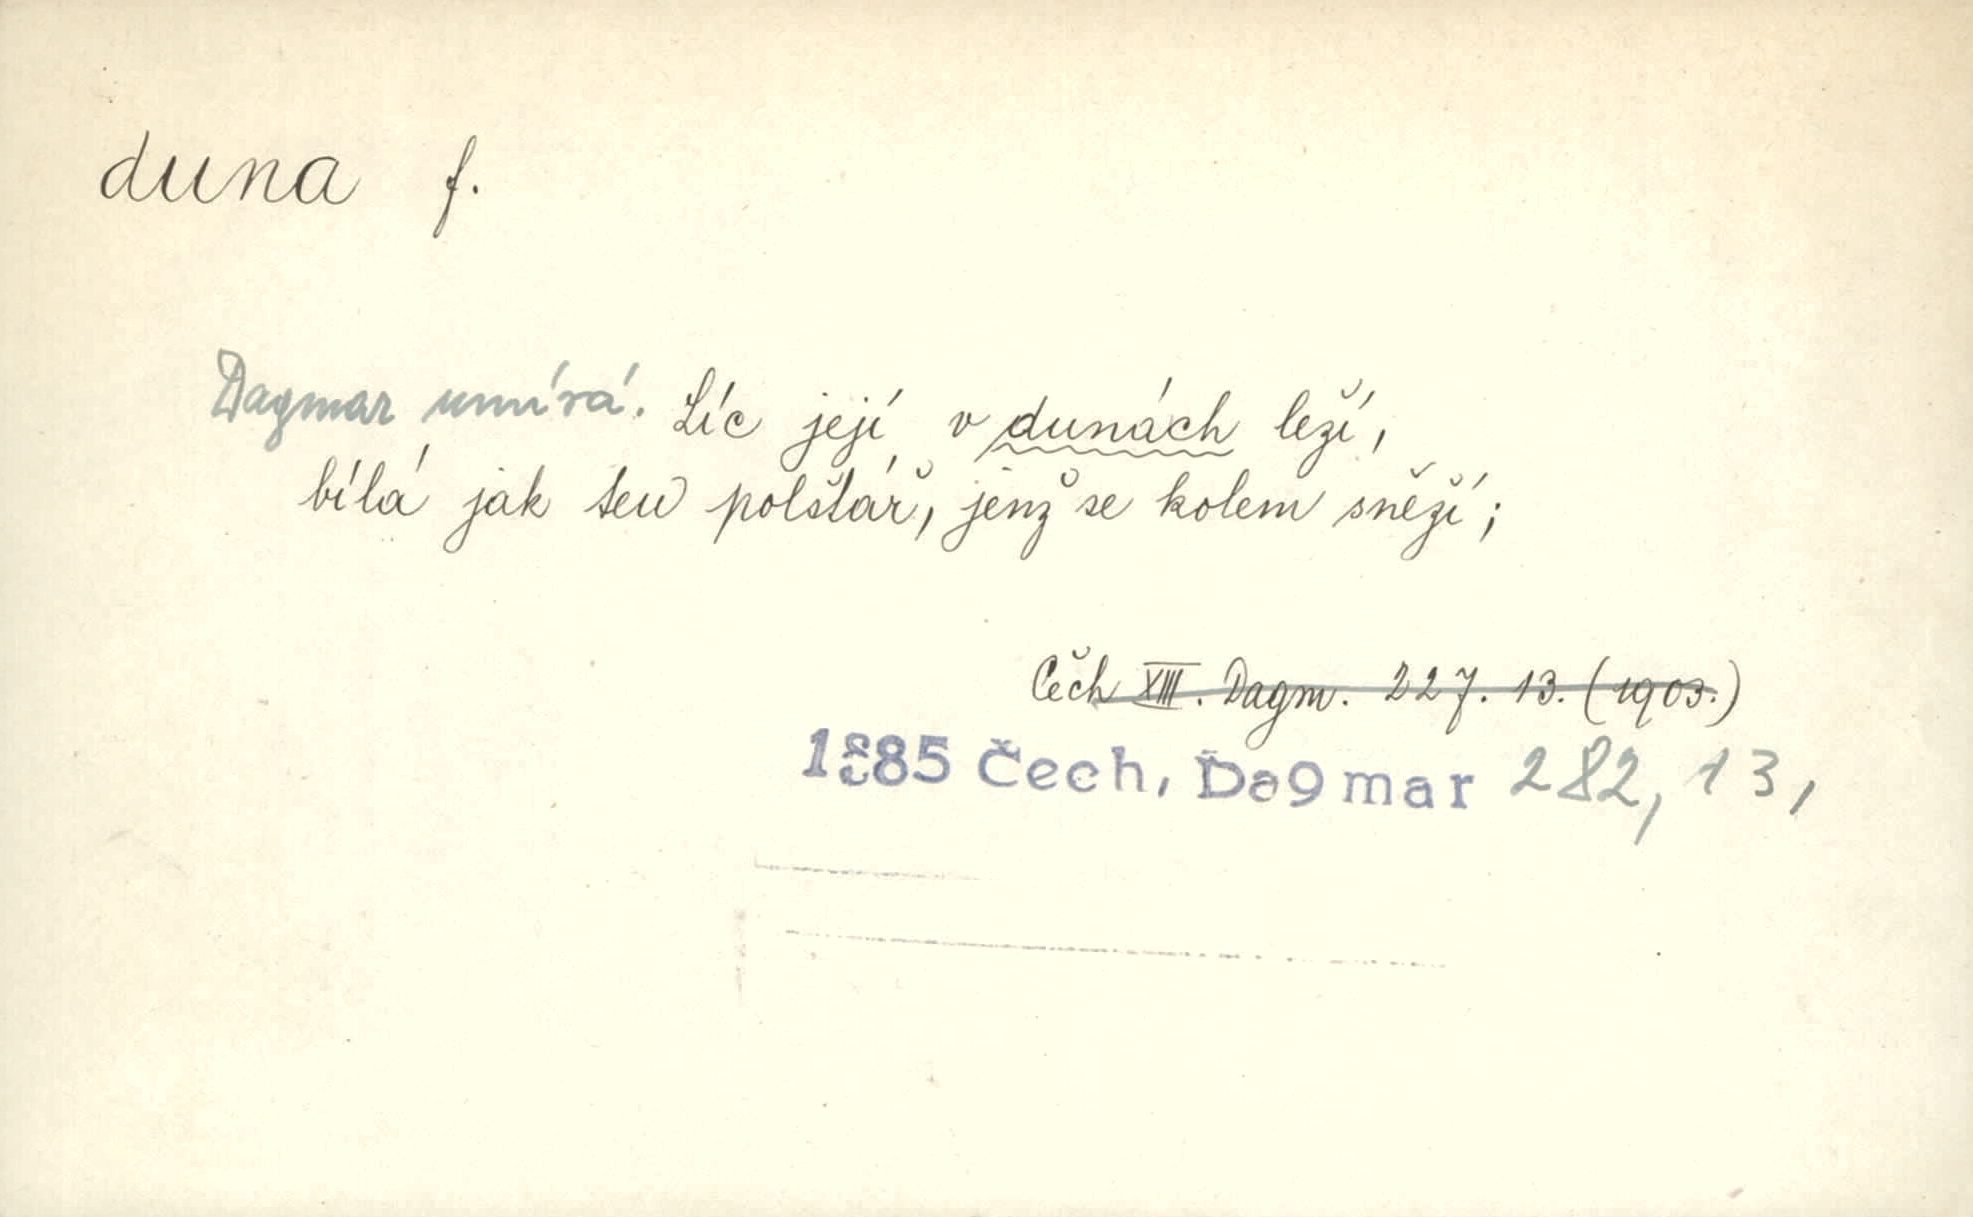 duna f.
Dagmar umírá. Líc její v dunách leží,
bílá jak ten polštář, jenž se kolem sněží;
Čech XIII. Dagm. 227. 13. (1903.)
1885 Čech, Dagmar 282, 13,